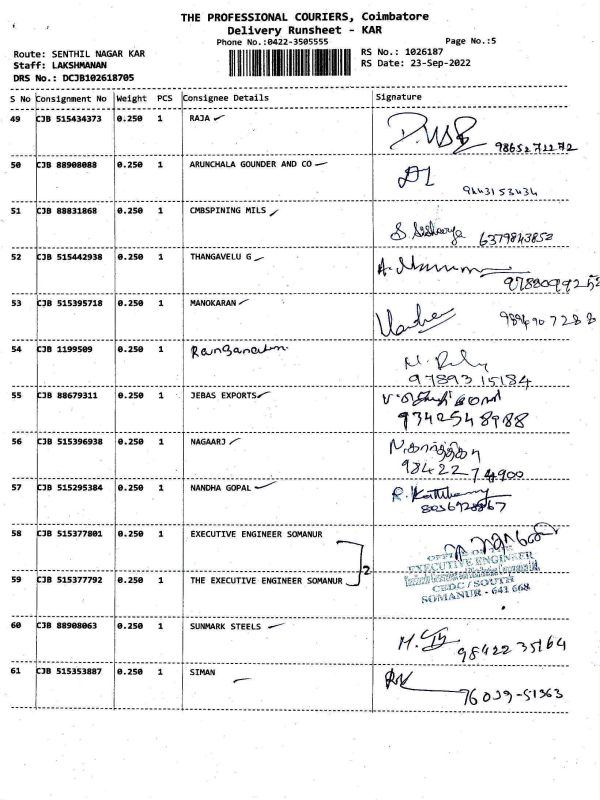 THE PROFESSIONAL COURIERS, Coimbatore
Delivery Runsheet - KAR
Phone No.:0422-3505555 Page No.:5
Route: SENTHIL NAGAR KAR RS No.: 1026187
Staff: LAKSHMANAN RS Date: 23-Sep-2022
DRS No.: DCJB102618705
S No Consignment No Weight PCS Consignee Details Signature
49 CJB 515434373 0.250 1 RAJA
50 CJB 88908088 0.250 1 ARUNCHALA GOUNDER AND CO
9443153434
51 CJB 88831868 0.250 1 CMBSPINING MILS
6379843852
52 CJB 515442938 0.250 1 THANGAVELU G
53 CJB 515395718 0.250 1 MANOKARAN
54 CJB 1199509 0.250 1 Ranganathan
9789315184
55 CJB 88679311 0.250 1 JEBAS EXPORTS
9342548988
56 CJB 515396938 0.250 1 NAGAARJ
9842274900
57 CJB 515295384 0.250 1 NANDHA GOPAL
58 CJB 515377801 0.250 1 EXECUTIVE ENGINEER SOMANUR
2
OFFICE OF THE
EXECUTIVE ENGINEER
59 CJB 515377792 0.250 1 THE EXECUTIVE ENGINEER SOMANUR
CEDC / SOUTH
SOMANUR - 641 668
60 CJB 88908063 0.250 1 SUNMARK STEELS
9842235164
61 CJB 515353887 0.250 1 SIMAN
76039-51363